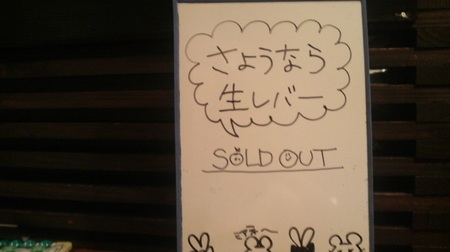 さようなら
生レバー
SOLD OUT